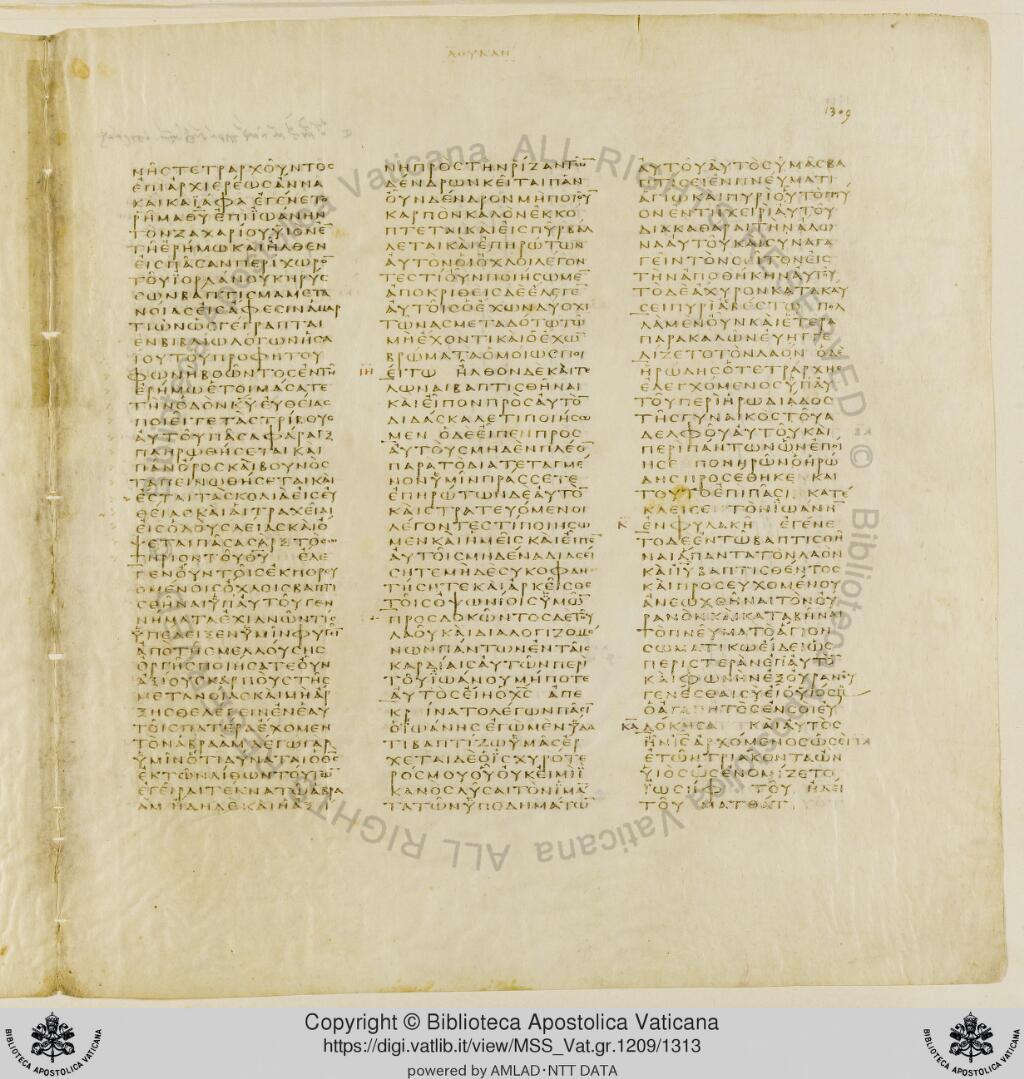 ΛΟΥΚΑΝ
1309
ΝΗΣΤΕΤΡΑΡΧΟΥΝΤΟΣ
ΕΠΙΑΡΧΙΕΡΕΩΣΑΝΝΑ
ΚΑΙΚΑΙΑΦΑ ΕΓΕΝΕΤΟ
ΡΗΜΑΘΥΕΠΙΙΩΑΝΗΝ
ΤΟΝΖΑΧΑΡΙΟΥΥΙΟΝΕ
ΤΗΕΡΗΜΩΚΑΙΗΛΘΕΝ
ΕΙΣΠΑΣΑΝΠΕΡΙΧΩΡΟ
ΤΟΥΙΟΡΔΑΝΟΥΚΗΡΥΣ
ΣΩΝΒΑΠΤΙΣΜΑΜΕΤΑ
ΝΟΙΑΣΕΙΣΑΦΕΣΙΝΑΜΑΡ
ΤΙΩΝΩΣΓΕΓΡΑΠΤΑΙ
ΕΝΒΙΒΛΩΛΟΓΩΝΗΣΑ
ΙΟΥΤΟΥΠΡΟΦΗΤΟΥ
ΦΩΝΗΒΟΩΝΤΟΣΕΝΤΗ
ΕΡΗΜΩΕΤΟΙΜΑΣΑΤΕ
ΤΗΝΟΔΟΝΚΥΕΥΘΕΙΑΣ
ΠΟΙΕΙΤΕΤΑΣΤΡΙΒΟΥΣ
ΑΥΤΟΥΠΑΣΑΦΑΡΑΓΞ
ΠΛΗΡΩΘΗΣΕΤΑΙΚΑΙ
ΠΑΝΟΡΟΣΚΑΙΒΟΥΝΟΣ
ΤΑΠΕΙΝΩΘΗΣΕΤΑΙΚΑΙ
ΕΣΤΑΙΤΑΣΚΟΛΙΑΕΙΣΕΥ
ΘΕΙΑΣΚΑΙΑΙΤΡΑΧΕΙΑΙ
ΕΙΣΟΔΟΥΣΛΕΙΑΣΚΑΙΟ
ΨΕΤΑΙΠΑΣΑΣΑΡΞΤΟΣΩ
ΤΗΡΙΟΝΤΟΥΘΥ ΕΛΕ
ΓΕΝΟΥΝΤΟΙΣΕΚΠΟΡΕΥ
ΟΜΕΝΟΙΣΟΧΛΟΙΣΒΑΠΤΙ
ΣΘΗΝΑΙΥΠΑΥΤΟΥΓΕΝ
ΝΗΜΑΤΑΕΧΙΔΝΩΝΤΙΣ
ΥΠΕΔΕΙΞΕΝΥΜΙΝΦΥΓΕΙ
ΑΠΟΤΗΣΜΕΛΛΟΥΣΗΣ
ΟΡΓΗΣΠΟΙΗΣΑΤΕΟΥΝ
ΑΞΙΟΥΣΚΑΡΠΟΥΣΤΗΣ
ΜΕΤΑΝΟΙΑΣΚΑΙΜΗΑΡ
ΞΗΣΘΕΛΕΓΕΙΝΕΝΕΑΥ
ΤΟΙΣΠΑΤΕΡΑΕΧΟΜΕΝ
ΤΟΝΑΒΡΑΑΜΛΕΓΩΓΑΡ
ΥΜΙΝΟΤΙΔΥΝΑΤΑΙΟΘΣ
ΕΚΤΩΝΛΙΘΩΝΤΟΥΤΩ
ΕΓΕΙΡΑΙΤΕΚΝΑΤΩΑΒΡΑ
ΑΜΗΔΗΔΕΚΑΙΗΑΞΙ
ΝΗΠΡΟΣΤΗΝΡΙΖΑΝΤΩ
ΔΕΝΔΡΩΝΚΕΙΤΑΙΠΑΝ
ΟΥΝΔΕΝΔΡΟΝΜΗΠΟΙΟΥ
ΚΑΡΠΟΝΚΑΛΟΝΕΚΚΟ
ΠΤΕΤΑΙΚΑΙΕΙΣΠΥΡΒΑΛ
ΛΕΤΑΙΚΑΙΕΠΗΡΩΤΩΝ
ΑΥΤΟΝΟΙΟΧΛΟΙΛΕΓΟΝ
ΤΕΣΤΙΟΥΝΠΟΙΗΣΩΜΕ
ΑΠΟΚΡΙΘΕΙΣΔΕΕΛΕΓΕ
ΑΥΤΟΙΣΟΕΧΩΝΔΥΟΧΙ
ΤΩΝΑΣΜΕΤΑΔΟΤΩΤΩ
ΜΗΕΧΟΝΤΙΚΑΙΟΕΧΩ
ΒΡΩΜΑΤΑΟΜΟΙΩΣΠΟΙ
ΕΙΤΩ ΗΛΘΟΝΔΕΚΑΙΤΕ
ΛΩΝΑΙΒΑΠΤΙΣΘΗΝΑΙ
ΚΑΙΕΙΠΟΝΠΡΟΣΑΥΤΟ
ΔΙΔΑΣΚΑΛΕΤΙΠΟΙΗΣΩ
ΜΕΝ ΟΔΕΕΙΠΕΝΠΡΟΣ
ΑΥΤΟΥΣΜΗΔΕΝΠΛΕΟ
ΠΑΡΑΤΟΔΙΑΤΕΤΑΓΜΕ
ΝΟΝΥΜΙΝΠΡΑΣΣΕΤΕ
ΕΠΗΡΩΤΩΝΔΕΑΥΤΟ
ΚΑΙΣΤΡΑΤΕΥΟΜΕΝΟΙ
ΛΕΓΟΝΤΕΣΤΙΠΟΙΗΣΩ
ΜΕΝΚΑΙΗΜΕΙΣΚΑΙΕΙΠΕ
ΑΥΤΟΙΣΜΗΔΕΝΑΔΙΑΣΕΙ
ΣΗΤΕΜΗΔΕΣΥΚΟΦΑΝ
ΤΗΣΗΤΕΚΑΙΑΡΚΕΙΣΘΕ
ΤΟΙΣΟΨΩΝΙΟΙΣΥΜΩ
ΠΡΟΣΔΟΚΩΝΤΟΣΔΕΤΟΥ
ΛΑΟΥΚΑΙΔΙΑΛΟΓΙΖΟΜΕ
ΝΩΝΠΑΝΤΩΝΕΝΤΑΙΣ
ΚΑΡΔΙΑΙΣΑΥΤΩΝΠΕΡΙ
ΤΟΥΙΩΑΝΟΥΜΗΠΟΤΕ
ΑΥΤΟΣΕΙΗΟΧΣ ΑΠΕ
ΚΡΙΝΑΤΟΛΕΓΩΝΠΑΣΙ
ΟΙΩΑΝΗΣΕΓΩΜΕΝΥΔΑ
ΤΙΒΑΠΤΙΖΩΥΜΑΣΕΡ
ΧΕΤΑΙΔΕΟΙΣΧΥΡΟΤΕ
ΡΟΣΜΟΥΟΥΟΥΚΕΙΜΙΙ
ΚΑΝΟΣΛΥΣΑΙΤΟΝΙΜΑ
ΤΑΤΩΝΥΠΟΔΗΜΑΤΩ
ΑΥΤΟΥΑΥΤΟΣΥΜΑΣΒΑ
ΠΤΙΣΕΙΕΝΠΝΕΥΜΑΤΙ
ΑΓΙΩΚΑΙΠΥΡΙΟΥΤΟΠΤΥ
ΟΝΕΝΤΗΧΕΙΡΙΑΥΤΟΥ
ΔΙΑΚΑΘΑΡΑΙΤΗΝΑΛΩ
ΝΑΑΥΤΟΥΚΑΙΣΥΝΑΓΑ
ΓΕΙΝΤΟΝΣΙΤΟΝΕΙΣ
ΤΗΝΑΠΟΘΗΚΗΝΑΥΤΟΥ
ΤΟΔΕΑΧΥΡΟΝΚΑΤΑΚΑΥ
ΣΕΙΠΥΡΙΑΣΒΕΣΤΩ ΠΟΛ
ΛΑΜΕΝΟΥΝΚΑΙΕΤΕΡΑ
ΠΑΡΑΚΑΛΩΝΕΥΗΓΓΕ
ΛΙΖΕΤΟΤΟΝΛΑΟΝ ΟΔΕ
ΗΡΩΔΗΣΟΤΕΤΡΑΡΧΗΣ
ΕΛΕΓΧΟΜΕΝΟΣΥΠΑΥ
ΤΟΥΠΕΡΙΗΡΩΔΙΑΔΟΣ
ΤΗΣΓΥΝΑΙΚΟΣΤΟΥΑ
ΔΕΛΦΟΥΑΥΤΟΥΚΑΙ
ΠΕΡΙΠΑΝΤΩΝΩΝΕΠΟΙ
ΗΣΕ ΠΟΝΗΡΩΝΟΗΡΩ
ΔΗΣΠΡΟΣΕΘΗΚΕ ΚΑΙ
ΤΟΥΤΟΕΠΙΠΑΣΙ ΚΑΤΕ
ΚΛΕΙΣΕ ΤΟΝΙΩΑΝΗ
ΕΝΦΥΛΑΚΗ ΕΓΕΝΕ
ΤΟΔΕΕΝΤΩΒΑΠΤΙΣΘΗ
ΝΑΙΑΠΑΝΤΑΤΟΝΛΑΟΝ
ΚΑΙΙΥΒΑΠΤΙΣΘΕΝΤΟΣ
ΚΑΙΠΡΟΣΕΥΧΟΜΕΝΟΥ
ΑΝΕΩΧΘΗΝΑΙΤΟΝΟΥ
ΡΑΝΟΝΚΑΙΚΑΤΑΒΗΝΑΙ
ΤΟΠΝΕΥΜΑΤΟΑΓΙΟΝ
ΣΩΜΑΤΙΚΩΕΙΔΕΙΩΣ
ΠΕΡΙΣΤΕΡΑΝΕΠΑΥΤΟ
ΚΑΙΦΩΝΗΝΕΞΟΥΡΑΝΟΥ
ΓΕΝΕΣΘΑΙΣΥΕΙΟΥΙΟΣΜΟΥ
ΟΑΓΑΠΗΤΟΣΕΝΣΟΙΕΥ
ΔΟΚΗΣΑ ΚΑΙΑΥΤΟΣ
ΗΝΙΣΑΡΧΟΜΕΝΟΣΩΣΕΙ
ΕΤΩΝΤΡΙΑΚΟΝΤΑΩΝ
ΥΙΟΣΩΣΕΝΟΜΙΖΕΤΟ
ΙΩΣΗΦ ΤΟΥ ΗΛΕΙ
ΤΟΥ ΜΑΤΘΑΤ
Copyright © Biblioteca Apostolica Vaticana
https://digi.vatlib.it/view/MSS_Vat.gr.1209/1313
powered by AMLAD·NTT DATA